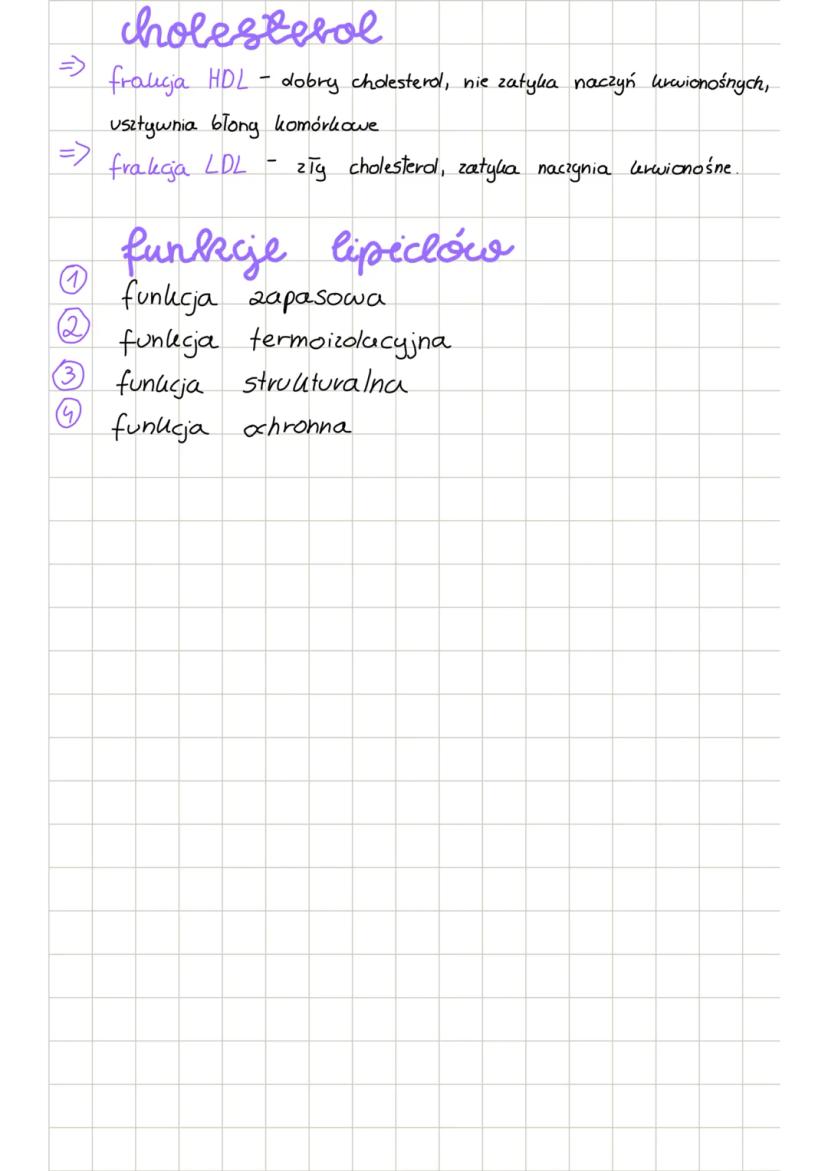 cholesterol
=> frakcja HDL - dobry cholesterol, nie zatyka naczyń krwionośnych,
usztywnia błony komórkowe
=> frakcja LDL - zły cholesterol, zatyka naczynia krwionośne.
funkcje lipidów
1 funkcja zapasowa
2 funkcja termoizolacyjna
3 funkcja strukturalna
4 funkcja ochronna